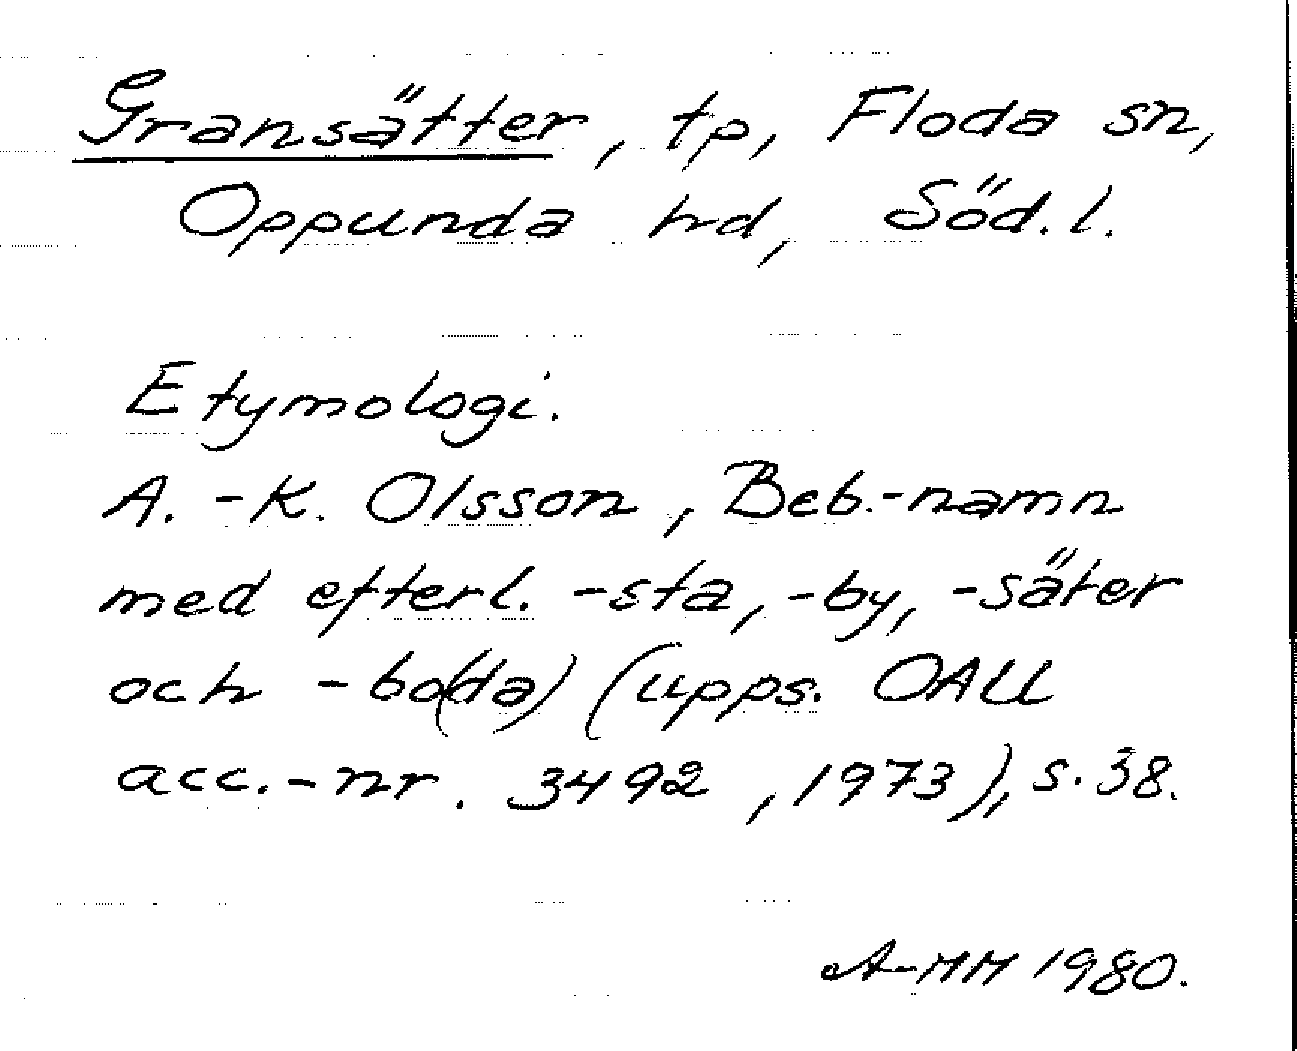 Gransätter, tp, Floda sn,
Oppunda hd, Söd. l.
Etymologi.
A.-K. Olsson, Beb.-namn
med efterl. -sta, -by, -säter
och -bo(da) (upps. OAU
acc.-nr. 3492, 1973), s. 38.
A-MH 1980.